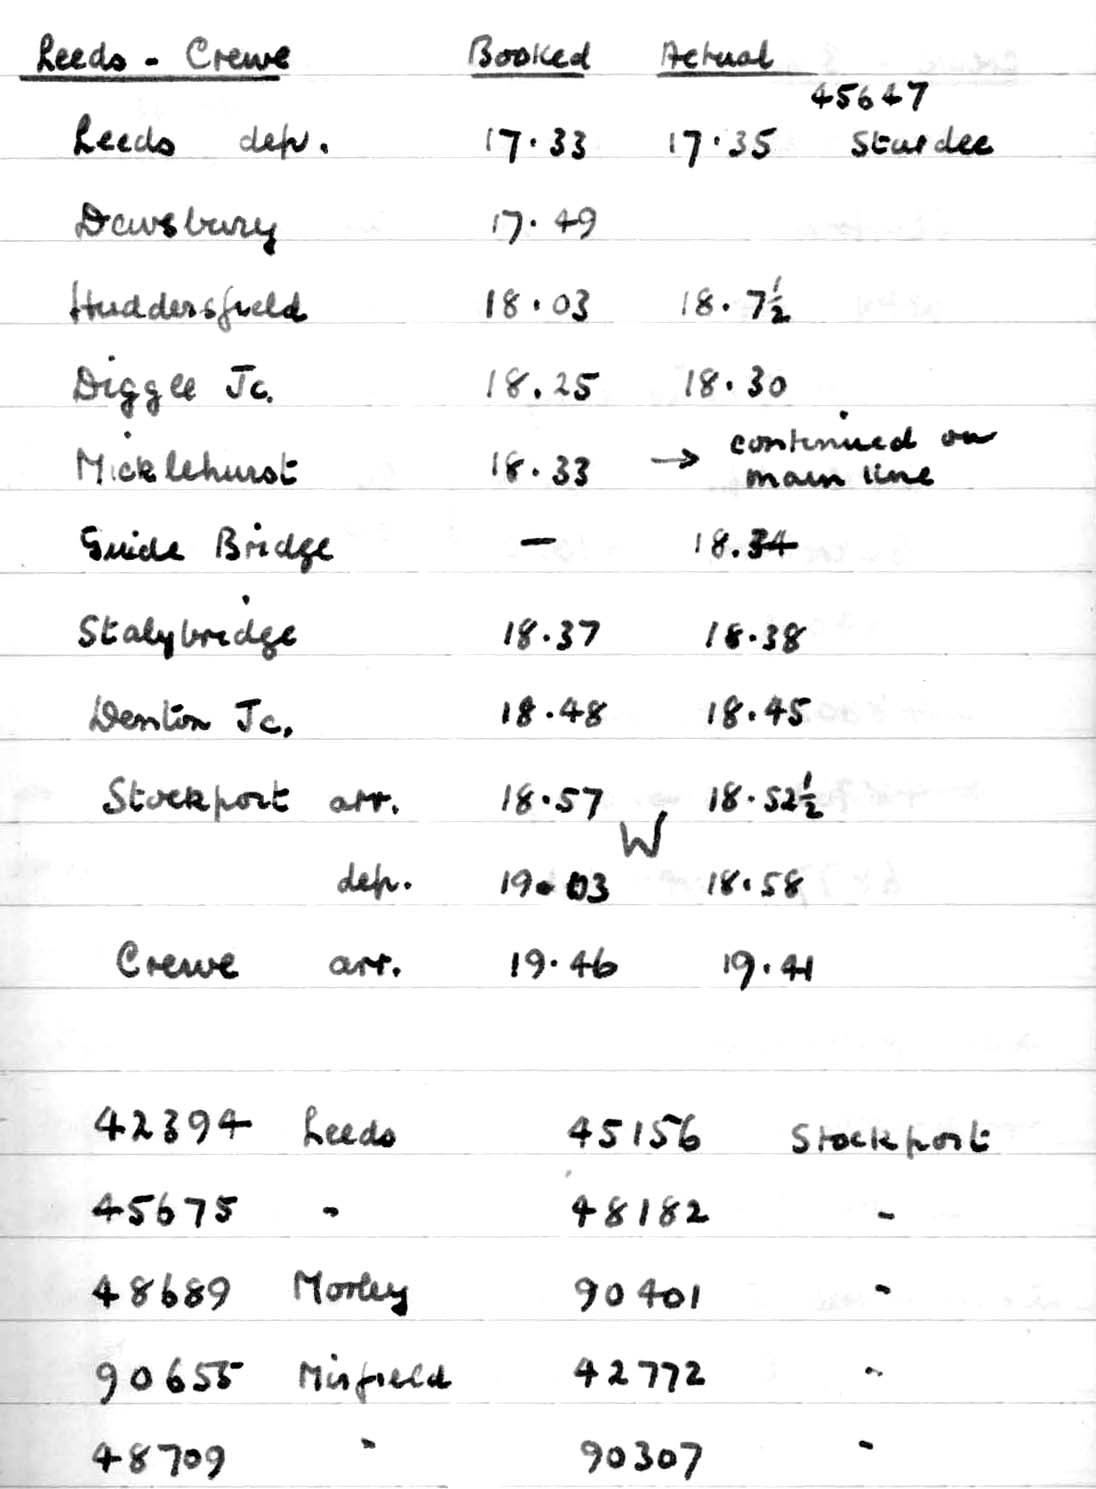 Leeds - Crewe Booked Actual
45647
Leeds dep. 17.33 17.35 Sturdee
Dewsbury 17.49
Huddersfield 18.03 18.7½
Diggle Jc. 18.25 18.30
Micklehurst 18.33 → continued on
main line
Guide Bridge - 18.34
Stalybridge 18.37 18.38
Denton Jc. 18.48 18.45
Stockport arr. 18.57 18.52½
W
dep. 19.03 18.58
Crewe arr. 19.46 19.41
42394 Leeds 45156 Stockport
45675 - 48182 -
48689 Morley 90401 -
90655 Mirfield 42772 -
48709 - 90307 -